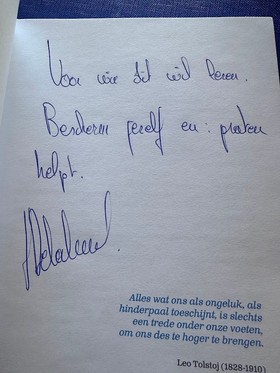 Voor wie dit wil lezen.
Bescherm jezelf en: praten
helpt.
Alles wat ons als ongeluk, als
hinderpaal toeschijnt, is slechts
een trede onder onze voeten,
om ons des te hoger te brengen.
Leo Tolstoj (1828-1910)